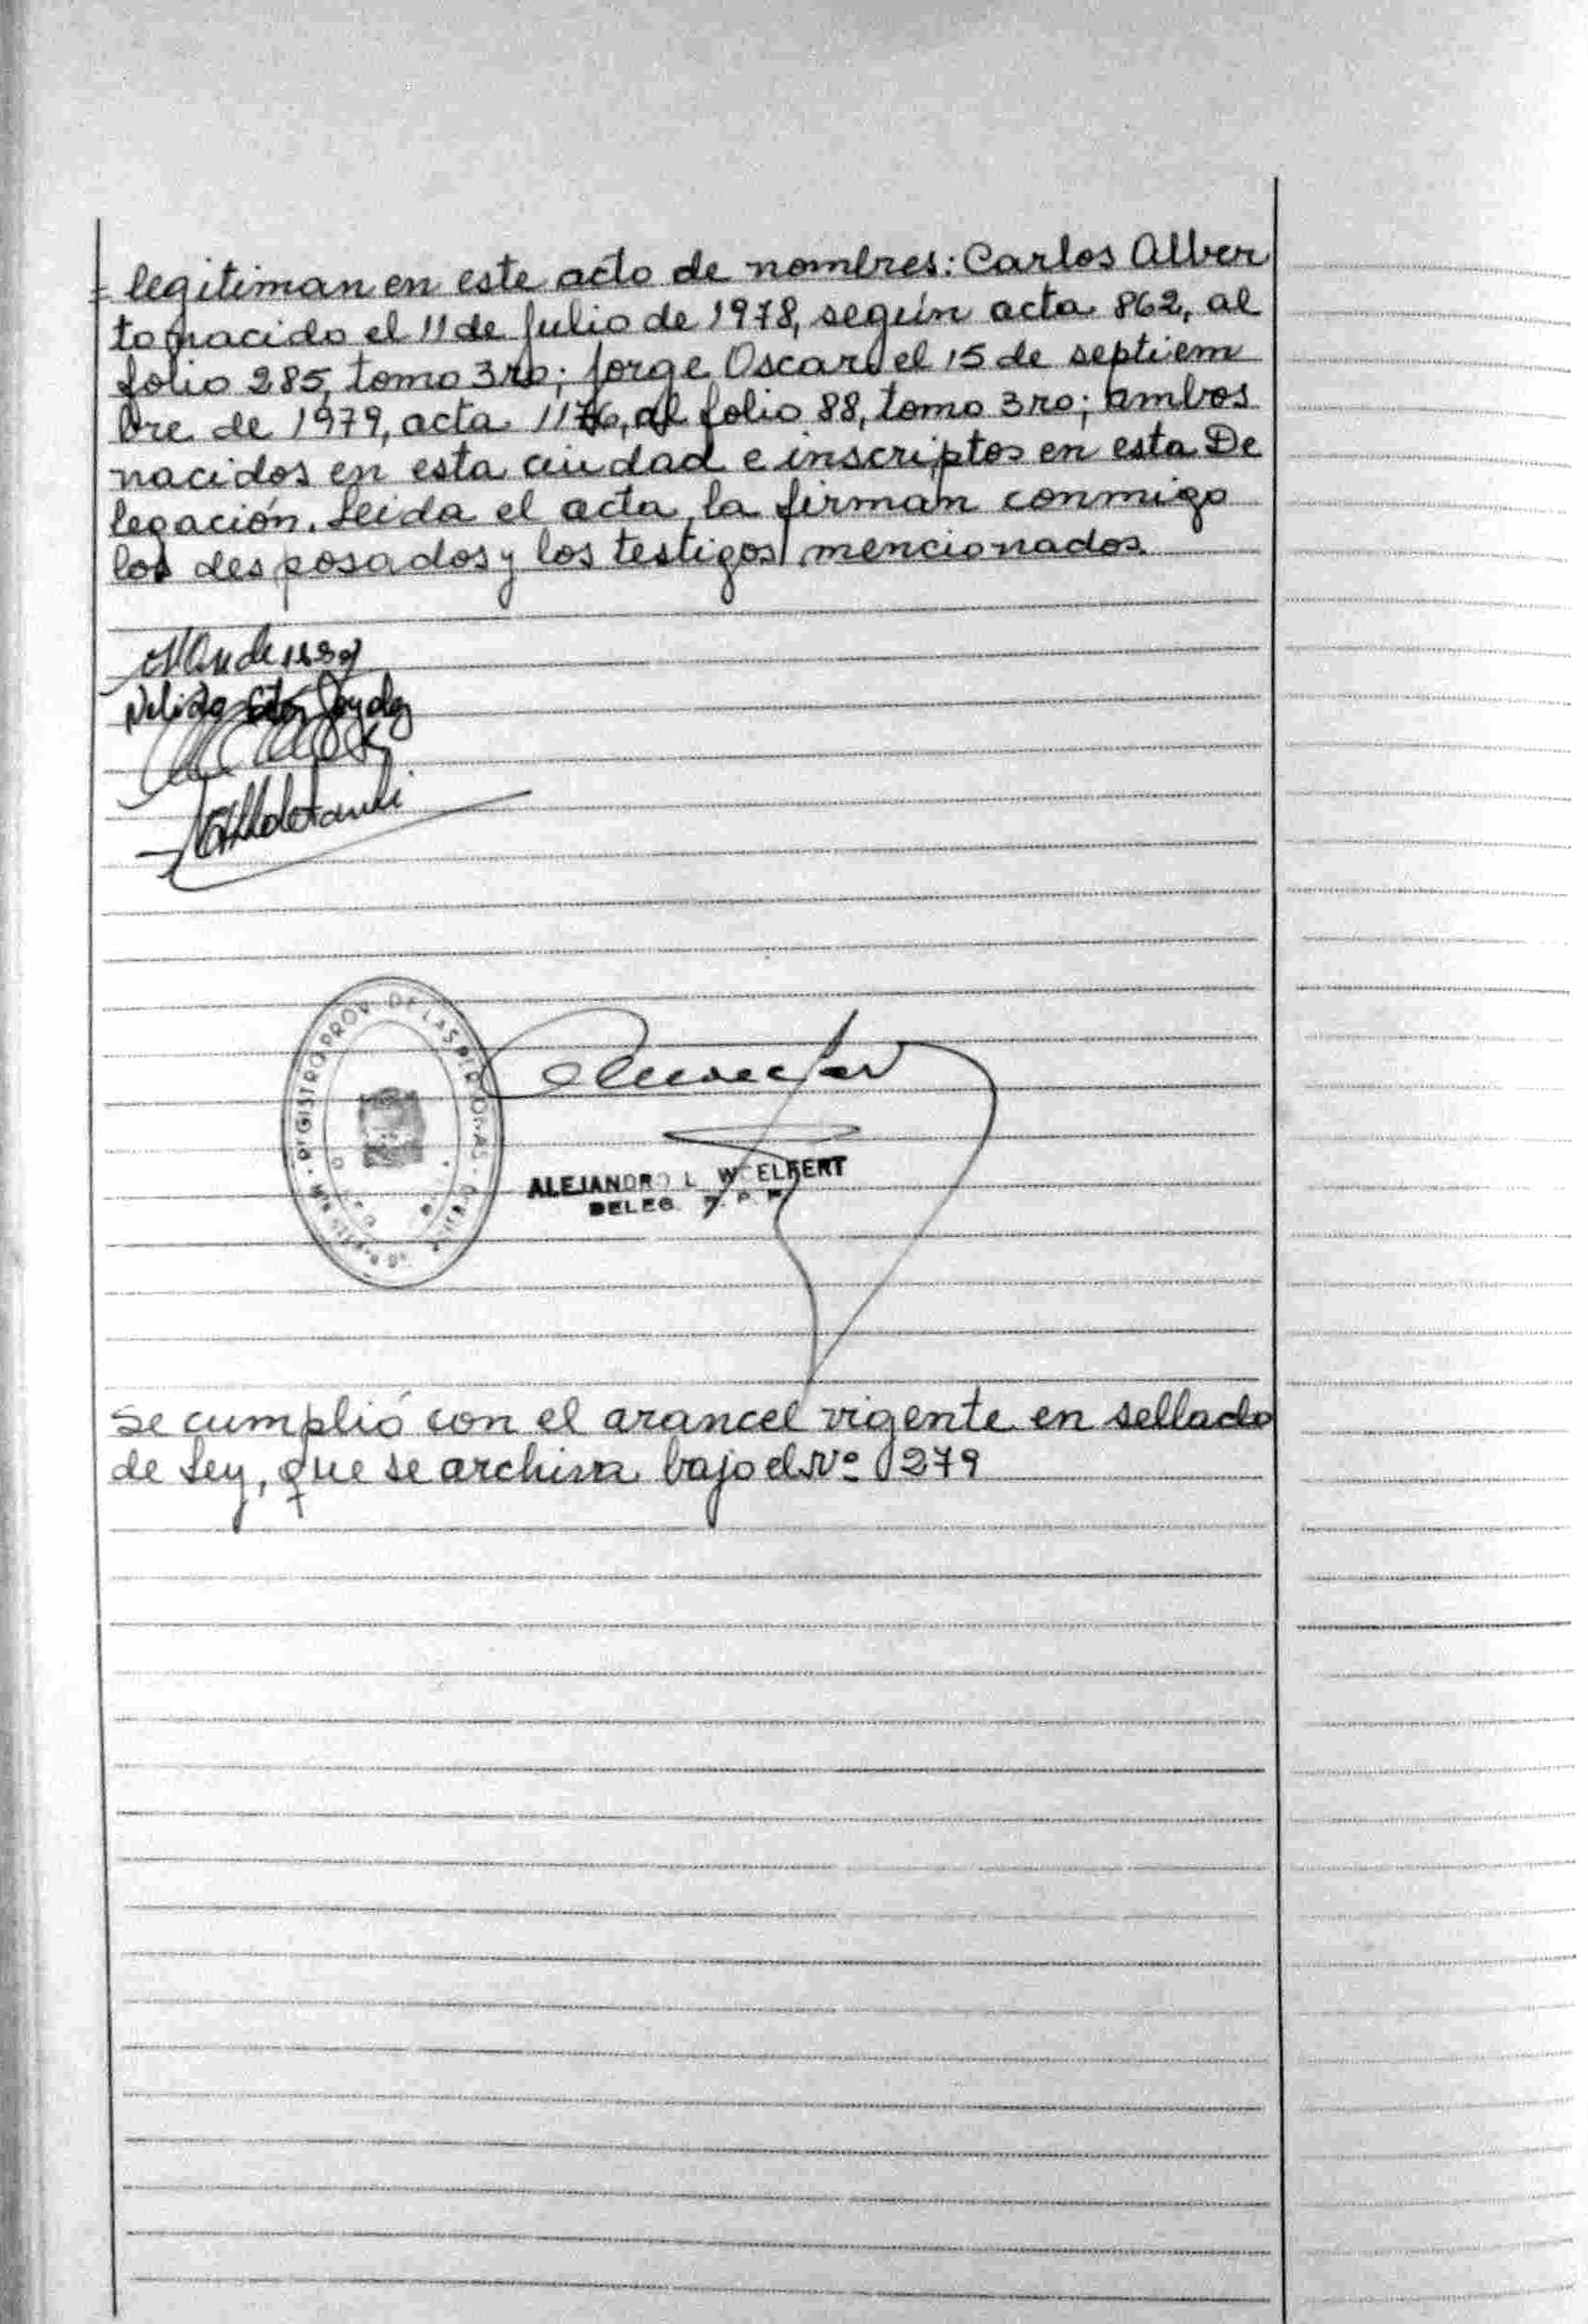 legitiman en este acto de nombres: Carlos Alber
to nacido el 11 de Julio de 1978, según acta 862, al
folio 285, tomo 3ro; Jorge Oscar, el 15 de septiem
bre de 1979, acta 1176, al folio 88, tomo 3ro; ambos
nacidos en esta ciudad e inscriptos en esta De
legación. Leida el acta, la firman conmigo
los desposados y los testigos mencionados.
Nelida
REGISTRO PROV. DE LAS PERSONAS
ALEJANDRO L. WOELFERT
DELEG. R. P. P.
Se cumplió con el arancel vigente en sellado
de Ley, que se archiva bajo el Nº 279